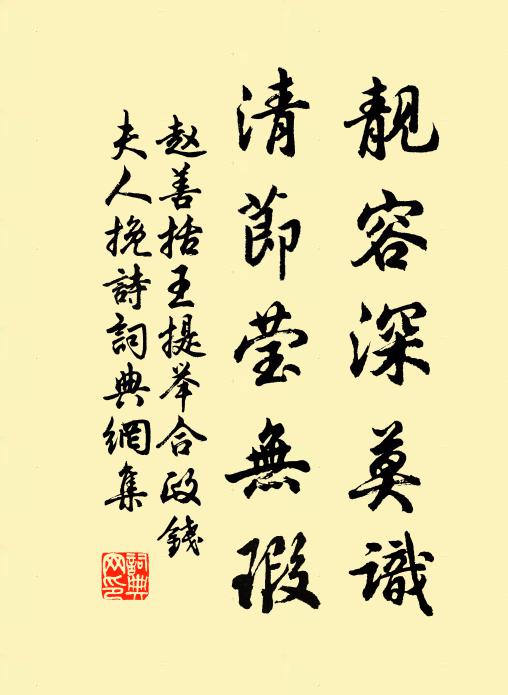 靚容深莫識
清節瑩無瑕
赵善括王提举合政錢
夫人挽詩詞典網集
詞典网印